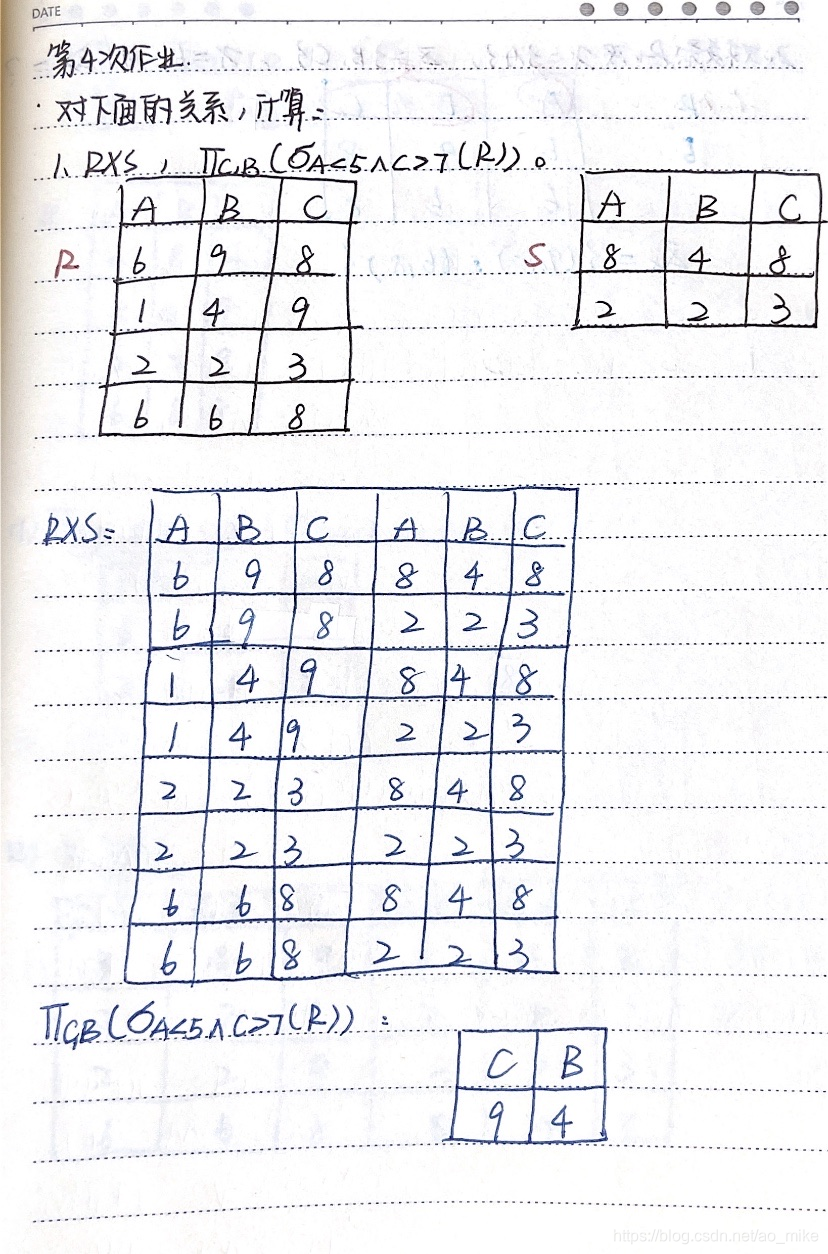 DATE
第4次作业.
· 对下面的关系,计算:
1、RXS, ΠC,B(σA<5∧C>7(R))。
A B C
R 6 9 8
1 4 9
2 2 3
6 6 8
A B C
S 8 4 8
2 2 3
RXS= A B C A B C
6 9 8 8 4 8
6 9 8 2 2 3
1 4 9 8 4 8
1 4 9 2 2 3
2 2 3 8 4 8
2 2 3 2 2 3
6 6 8 8 4 8
6 6 8 2 2 3
ΠC,B(σA<5∧C>7(R)):
C B
9 4
https://blog.csdn.net/ao_mike